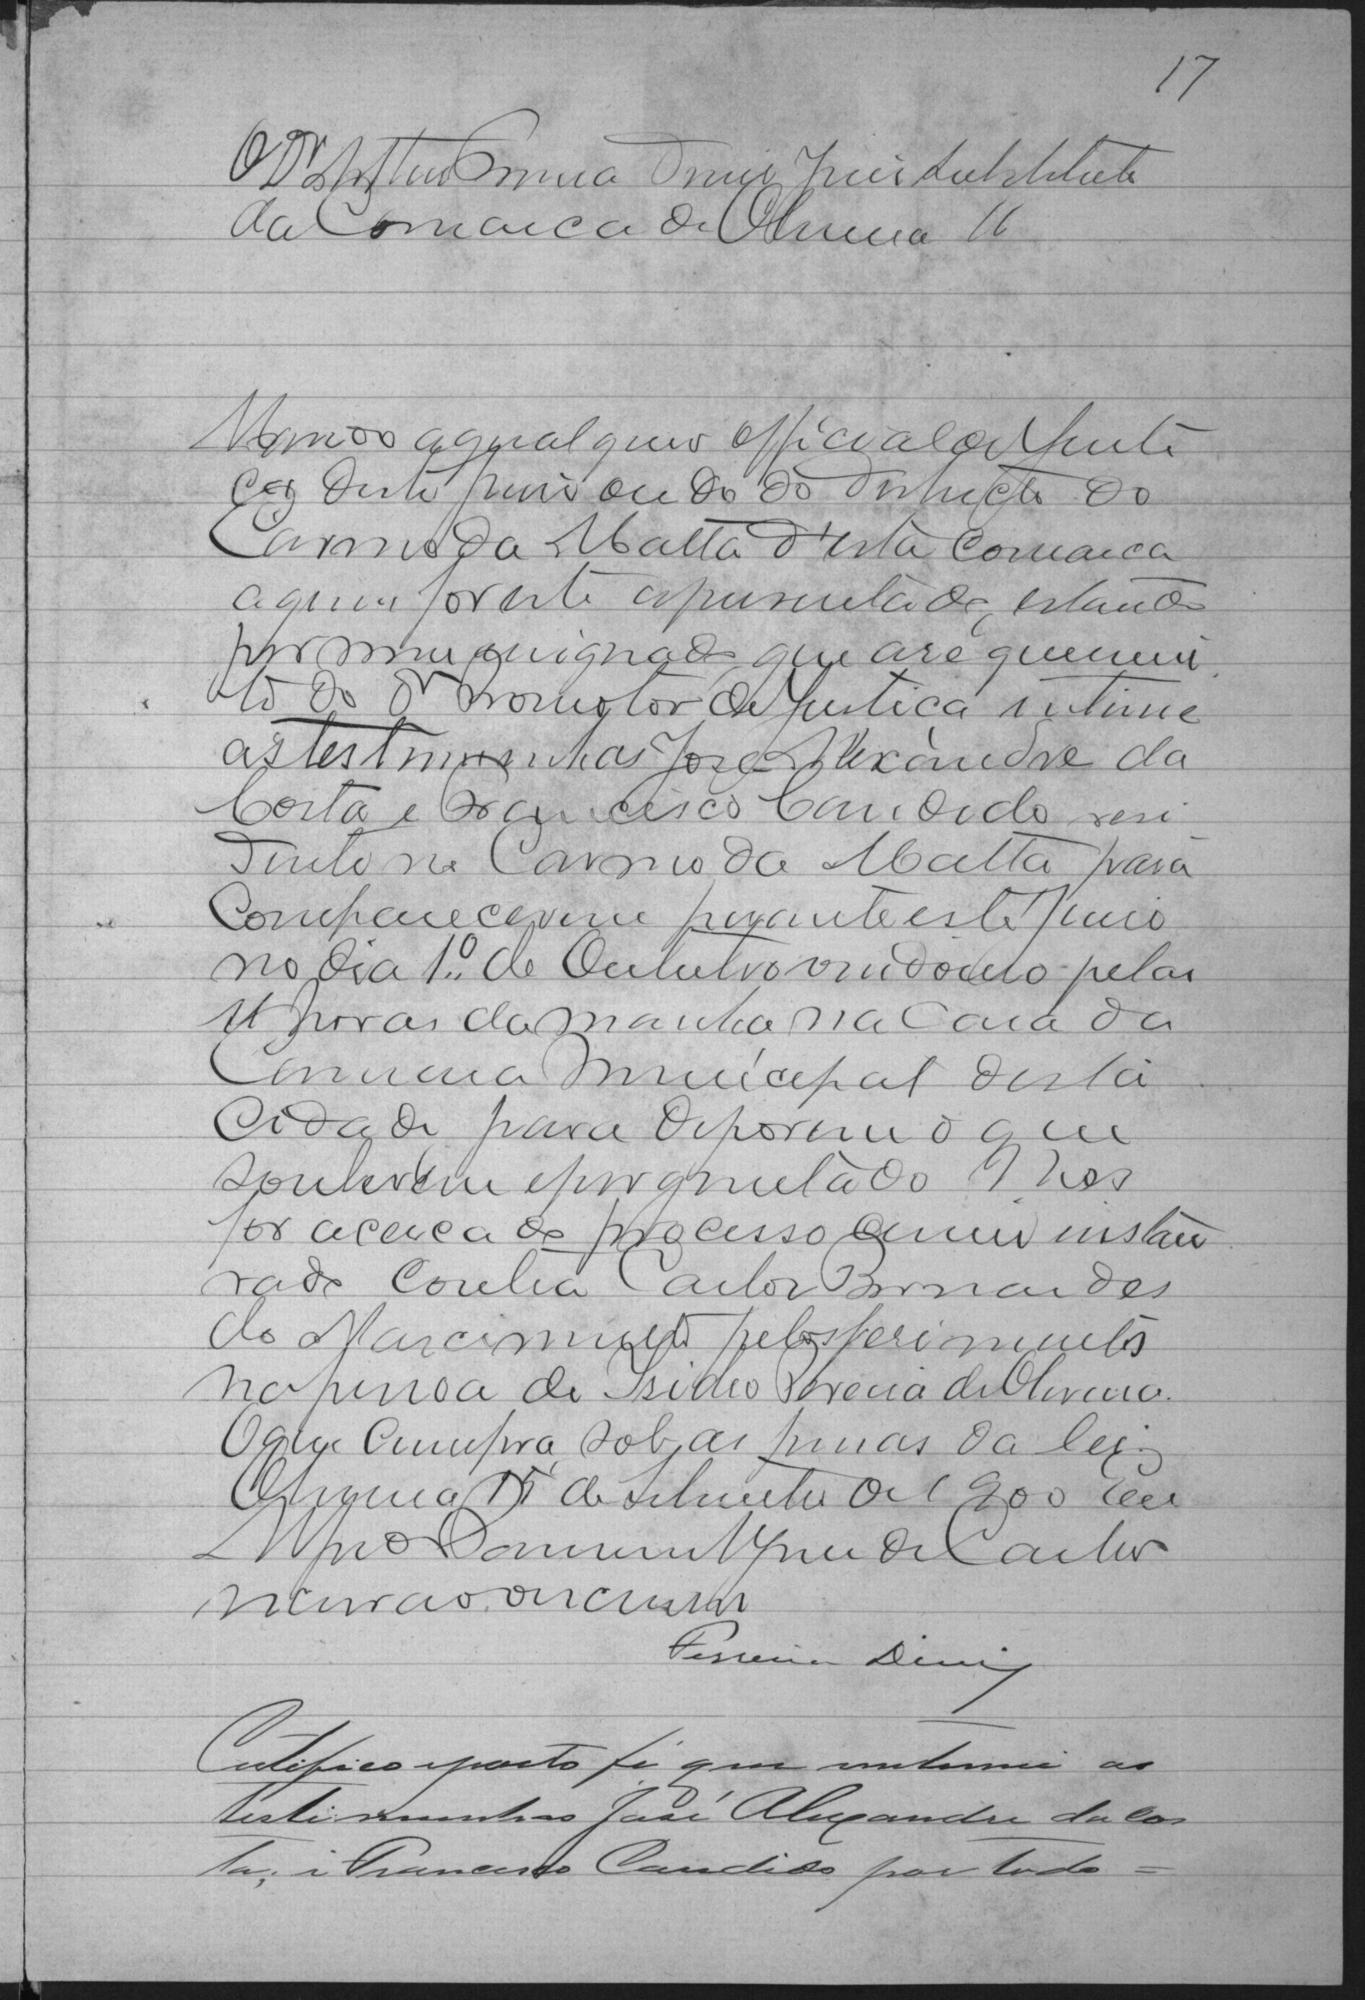 17
O Dr Arthur Ferreira Diniz Juiz Substituto
da Comarca de Oliveira
Mando a qualquer official de Justi
ça deste Juizo ou do do Districto do
Carmo da Matta d'esta Comarca
a quem for este apresentado, estando
por mim assignado, que a requerimen
to do Dr Promotor de Justiça intime
as testimunhas José Alexandre da
Costa e Francisco Candido resi
dente no Carmo da Matta para
Comparecerem perante este Juizo
no dia 1º de Outubro vindouro pelas
11 horas da manha na Casa da
Camara Municipal desta
Cidade para deporem o que
souberem e perguntado lhes
for acerca do processo crime instau
rado contra Carlos Bernardes
do Nascimento pelos ferimentos
na pessoa de Isidro Pereira de Oliveira.
O que cumpra, sob as penas da lei.
Oliveira 15 de Setembro de 1900 Eu
de Castro
escrivão o escrevi
Ferreira Diniz
Certifico e porto fé que intimei as
testimunhas José Alexandre da Cos
ta, i Francisco Candido por todo =